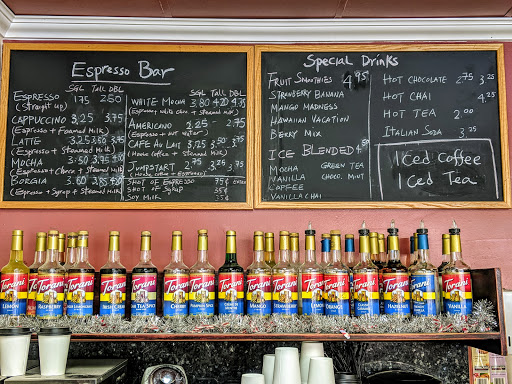 Espresso Bar
SGL TALL DBL
ESPRESSO 1.75 2.50
(Straight up)
CAPPUCCINO 3.25 3.75
(Espresso + Foamed Milk)
LATTE 3.25 3.50 3.75
(Espresso + Steamed Milk)
MOCHA 3.50 3.75
(Espresso + Choco + Steamed Milk)
BORGIA 3.60
(Espresso + Syrup + Steamed Milk)
SGL TALL DBL
WHITE MOCHA 3.80 4.20
AMERICANO 2.25 2.75
(Espresso + hot water)
CAFE AU LAIT 3.25 3.50
(House coffee + Steamed Milk)
JUMPSTART 3.75
(House coffee + Espresso)
SHOT OF ESPRESSO 75¢
SHOT OF SYRUP 35¢
SOY MILK 35¢
Special Drinks
FRUIT SMOOTHIES 4.95
STRAWBERRY BANANA
MANGO MADNESS
HAWAIIAN VACATION
BERRY MIX
ICE BLENDED 4.50
MOCHA GREEN TEA
VANILLA CHOC. MINT
COFFEE
VANILLA CHAI
HOT CHOCOLATE 2.75 3.25
HOT CHAI 4.25
HOT TEA 2.00
ITALIAN SODA 3.25
Iced Coffee
Iced Tea
Torani Torani Torani Torani Torani Torani Torani Torani Torani Torani Torani Torani Torani Torani Torani
LEMON RASPBERRY CHERRY MANGO STRAWBERRY LEMON ORANGE HAZELNUT VANILLA